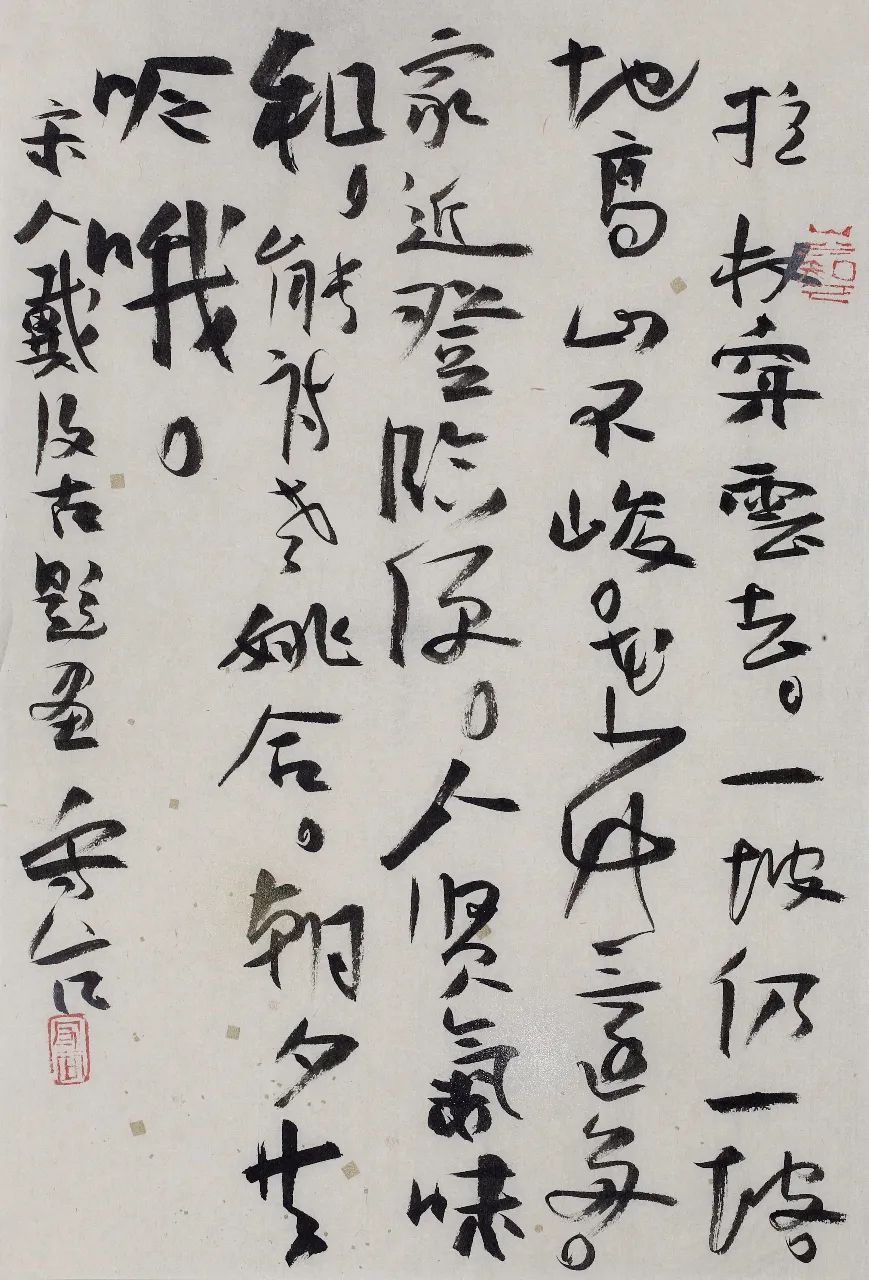 拄杖穿雲去。一坡仍一坡。
地高山不峻。花少艸還多。
家近登臨便。人賢氣味
和。能詩老姚合。朝夕共
吟哦。
宋人戴復古題畫